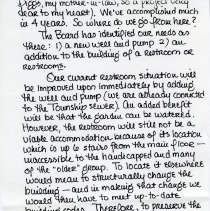 Figgs, my mother-in-law, so a project very
dear to my heart). We've accomplished much
in 4 years. So where do we go from here?
The Board has identified our needs as
these: 1) a new well and pump 2) an
addition to the building of a restroom or
restrooms.
Our current restroom situation will
be improved upon immediately by adding
the well and pump (we are already connected
to the Township sewer). An added benefit
will be that the garden can be watered.
However, the restroom will still not be a
viable accommodation because of its location
which is up 6 stairs from the main floor —
unaccessible to the handicapped and many
of the "older" group. To locate it elsewhere
would mean to structurally change the
building — and in making that change we
would then have to meet up-to-date
building codes. Therefore, to preserve the